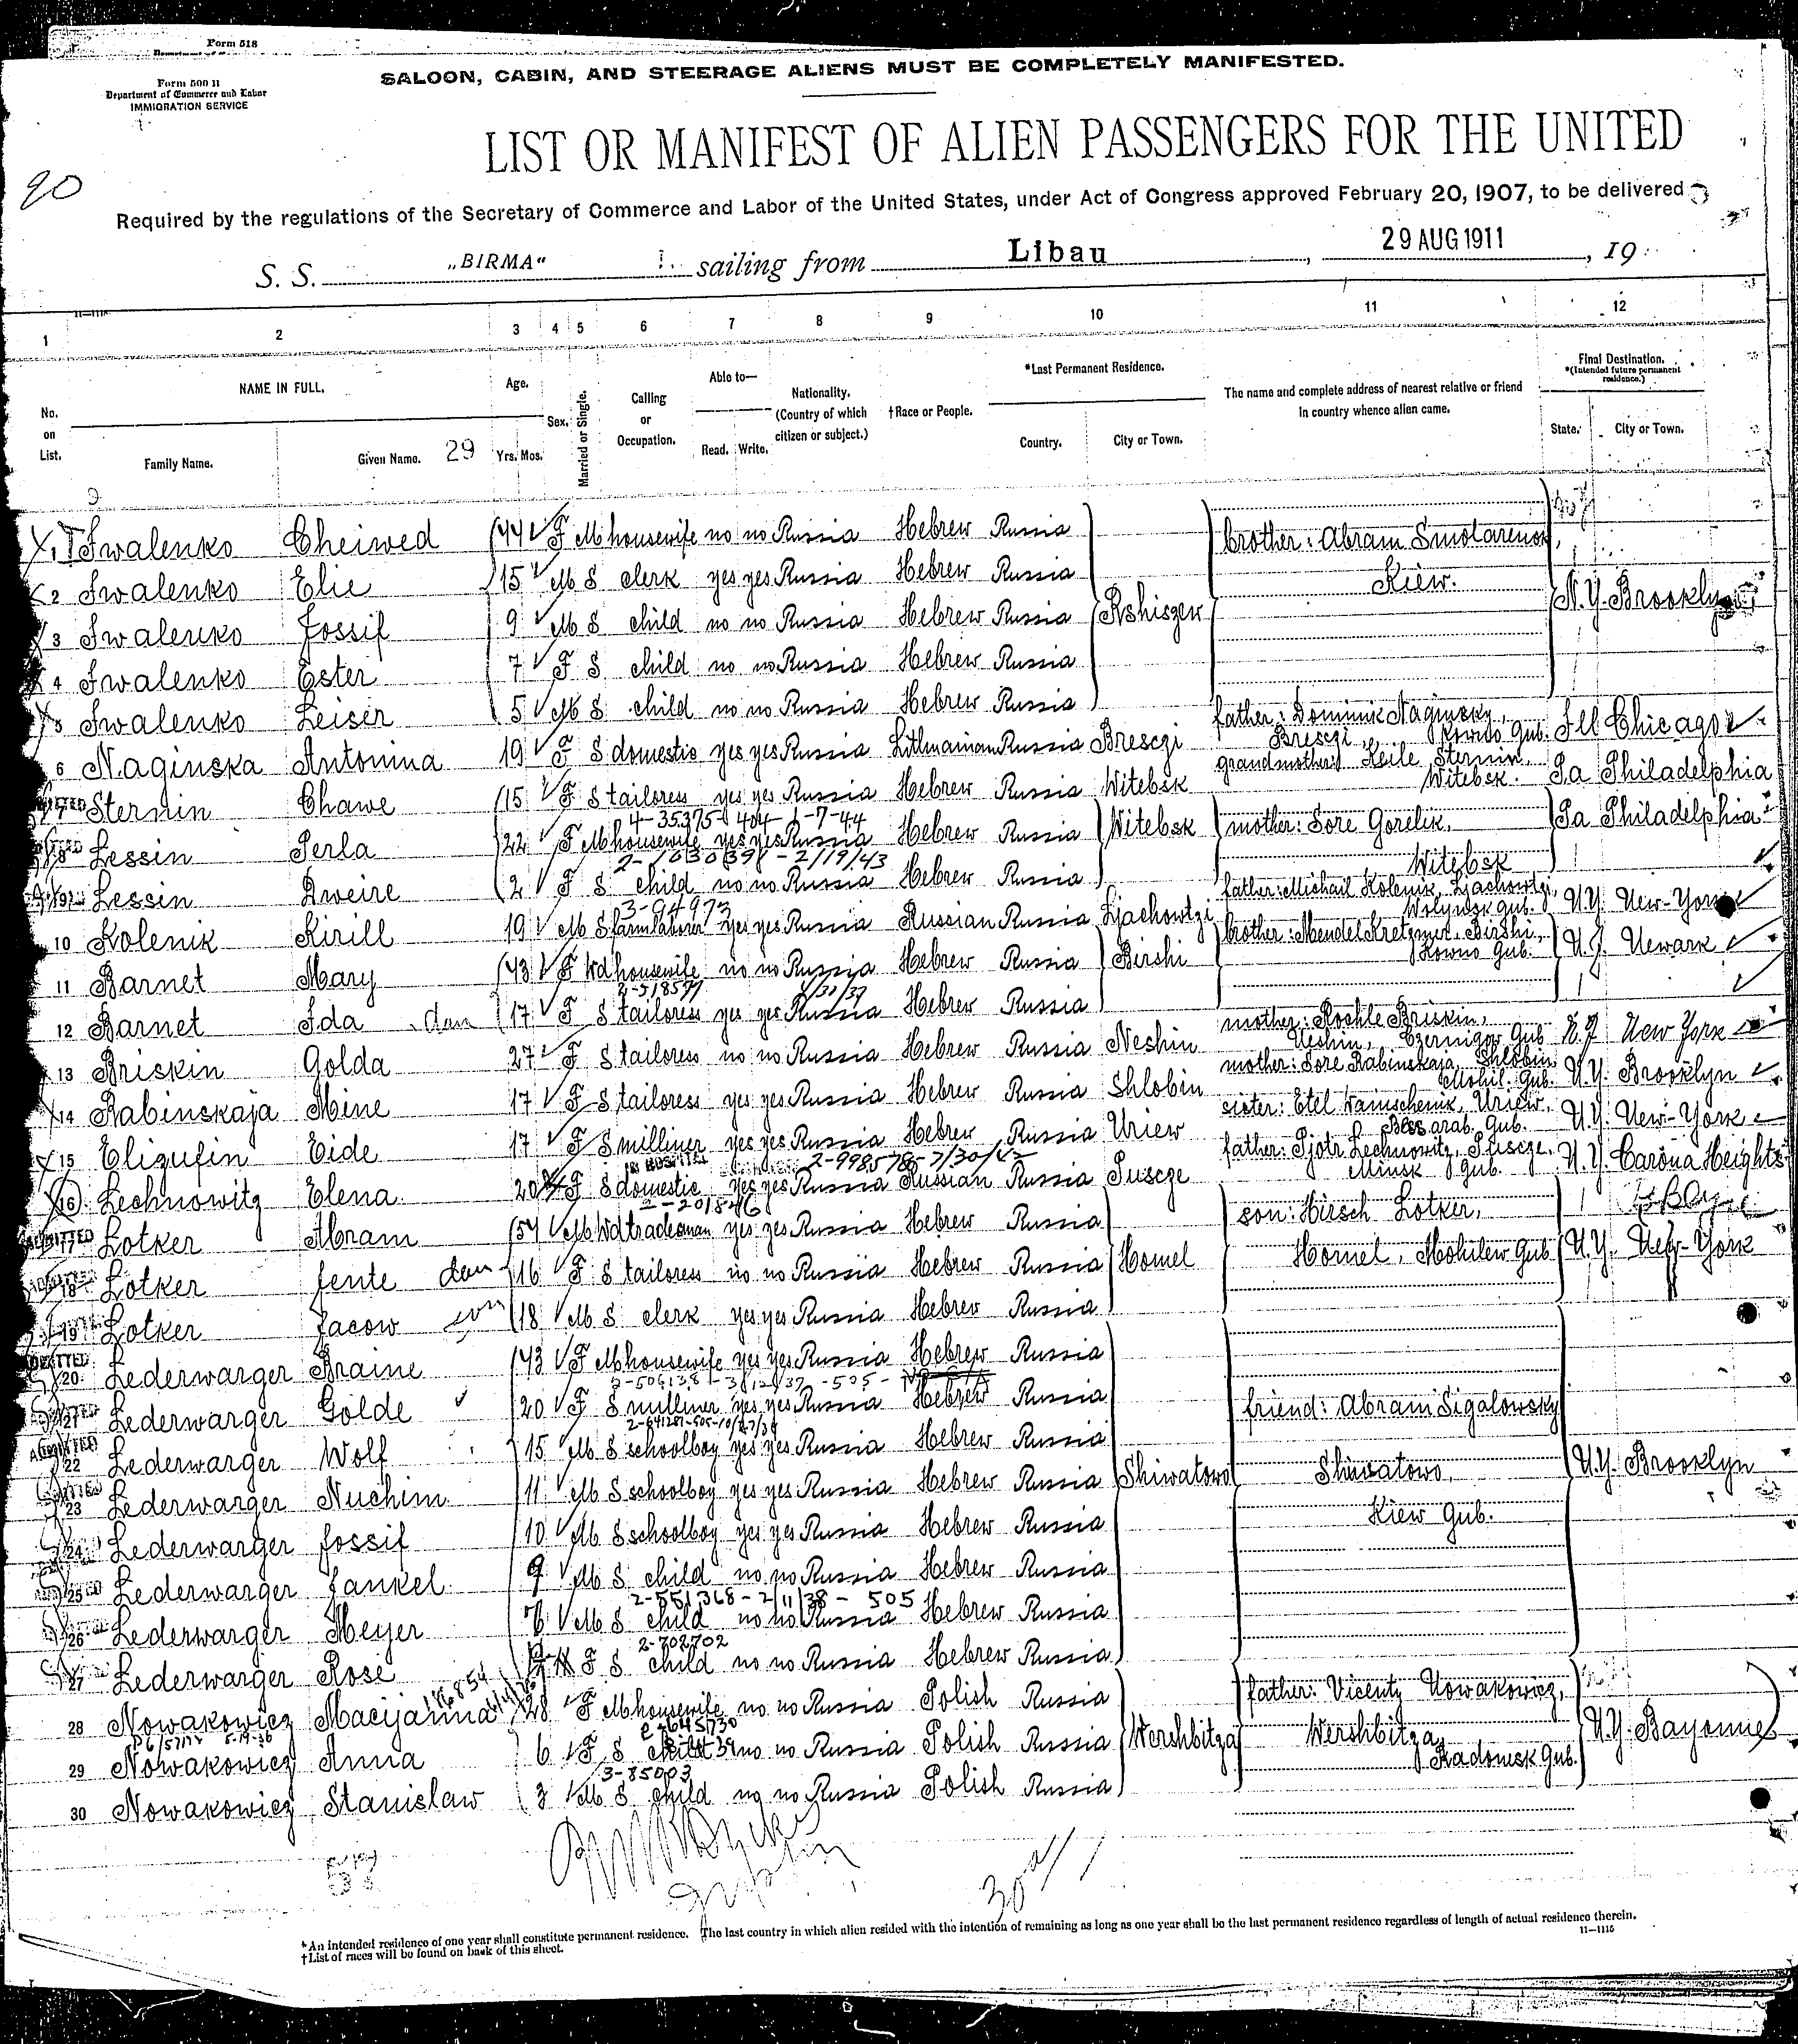 Form 518
Form 500 B
Department of Commerce and Labor
IMMIGRATION SERVICE
SALOON, CABIN, AND STEERAGE ALIENS MUST BE COMPLETELY MANIFESTED.
LIST OR MANIFEST OF ALIEN PASSENGERS FOR THE UNITED
90
Required by the regulations of the Secretary of Commerce and Labor of the United States, under Act of Congress approved February 20, 1907, to be delivered
S. S. „BIRMA“ sailing from Libau, 29 AUG 1911, 19
1 2 3 4 5 6 7 8 9 10 11 12
No. on List.
NAME IN FULL.
Family Name. Given Name. 29
Age. Yrs. Mos.
Sex.
Married or Single.
Calling or Occupation.
Able to— Read. Write.
Nationality. (Country of which citizen or subject.)
†Race or People.
*Last Permanent Residence. Country. City or Town.
The name and complete address of nearest relative or friend in country whence alien came.
Final Destination. *(Intended future permanent residence.) State. City or Town.
1 Iwalenko Cheiwed 44 F M housewife no no Russia Hebrew Russia brother: Abram Smolarenok,
2 Iwalenko Elie 15 M S clerk yes yes Russia Hebrew Russia Kiew.
3 Iwalenko Jossif 9 M S child no no Russia Hebrew Russia Rshiszew N.Y. Brooklyn
4 Iwalenko Ester 7 F S child no no Russia Hebrew Russia
5 Iwalenko Leiser 5 M S child no no Russia Hebrew Russia
6 Naginska Antonina 19 F S domestic yes yes Russia Lithuanian Russia Bresczi father: Dominik Naginsky, Bresczi, Kowno Gub. Ill Chicago
7 Sternin Chawe 15 F S tailoress yes yes Russia Hebrew Russia Witebsk grandmother: Keile Sternin, Witebsk. Pa Philadelphia
4-35375 404 1-7-44
8 Lessin Perla 22 F M housewife yes yes Russia Hebrew Russia Witebsk mother: Sore Gorelik, Pa Philadelphia
2-1030398-2/19/43
9 Lessin Dweire 2 F S child no no Russia Hebrew Russia Witebsk
3-94973
10 Kolenik Kirill 19 M S farmlabourer yes yes Russia Russian Russia Ljachowtzi father: Michail Kolenik, Ljachowtzi, Wolynsk Gub. N.Y. New-York
11 Barnet Mary 43 F Wd housewife no no Russia Hebrew Russia Birshi brother: Mendel Kretzmer, Birshi, Kowno Gub. N.J. Newark
2-518597
12 Barnet Ida dau 17 F S tailoress yes yes Russia Hebrew Russia
13 Briskin Golda 27 F S tailoress no no Russia Hebrew Russia Neshin mother: Rochle Briskin, Neshin, Czernigow Gub. N.Y. New York
14 Rabinskaja Mine 17 F S tailoress yes yes Russia Hebrew Russia Shlobin mother: Sore Rabinskaja, Shlobin, Mohil. Gub. N.Y. Brooklyn
15 Elizufin Eide 17 F S milliner yes yes Russia Hebrew Russia Uriew sister: Etel Wainschenk, Uriew, Bessarab. Gub. N.Y. New-York
IN HOSPITAL 2-998578-7/30/42
16 Lechnowitz Elena 20 F S domestic yes yes Russia Russian Russia Puscze father: Pjotr Lechnowitz, Puscze, Minsk Gub. N.Y. Carona Heights
2-201846
17 Lotker Abram 54 M Wd tradesman yes yes Russia Hebrew Russia son: Hirsch Lotker,
18 Lotker Jente dau 16 F S tailoress no no Russia Hebrew Russia Homel Homel, Mohilew Gub. N.Y. New-York
19 Lotker Jacow son 18 M S clerk yes yes Russia Hebrew Russia
20 Lederwarger Braine 43 F M housewife yes yes Russia Hebrew Russia
21 Lederwarger Golde 20 F S milliner yes yes Russia Hebrew Russia friend: Abram Sigalowsky
22 Lederwarger Wolf 15 M S schoolboy yes yes Russia Hebrew Russia
23 Lederwarger Nuchim 11 M S schoolboy yes yes Russia Hebrew Russia Shiwatowo Shiwatowo, N.Y. Brooklyn
24 Lederwarger Jossif 10 M S schoolboy yes yes Russia Hebrew Russia Kiew Gub.
25 Lederwarger Jankel 9 M S child no no Russia Hebrew Russia
2-551368-2/11/38-505
26 Lederwarger Meyer M S child no no Russia Hebrew Russia
2-702702
27 Lederwarger Rose F S child no no Russia Hebrew Russia
28 Nowakowicz Macijanna 28 F M housewife no no Russia Polish Russia father: Vicenty Nowakowicz,
29 Nowakowicz Anna 6 F S child no no Russia Polish Russia Wershbitza Wershbitza, Radomsk Gub. N.Y. Bayonne
3-85003
30 Nowakowicz Stanislaw 3 M S child no no Russia Polish Russia
30
*An intended residence of one year shall constitute permanent residence. The last country in which alien resided with the intention of remaining as long as one year shall be the last permanent residence regardless of length of actual residence therein.
†List of races will be found on back of this sheet.
11—1115